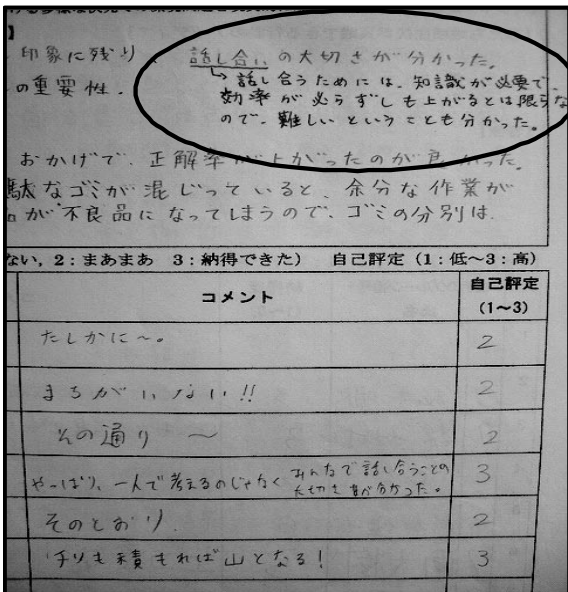 】
印象に残り、 話し合いの大切さが分かった。
の重要性. 話し合うためには、知識が必要で、
効率が必らずしも上がるとは限らな
ので、難しいということも分かった。
おかげで、正解率が上がったのが良かった。
駄なゴミが混じっていると、余分な作業が
品が不良品になってしまうので、ゴミの分別は.
ない，2：まあまあ 3：納得できた） 自己評定（1：低～3：高）
コメント 自己評定
(1～3)
たしかに～。 2
まちがいない!! 2
その通り ～ 2
やっぱり、一人で考えるのじゃなく みんなで話し合うことの
大切さが分かった。 3
そのとおり. 2
チリも積もれば山となる! 3